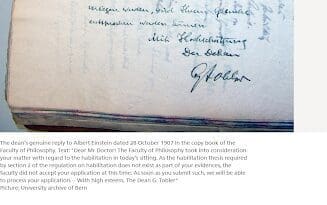 entsprochen werden können
Mit Hochachtung
Der Dekan
G Tobler
The dean's genuine reply to Albert Einstein dated 28 October 1907 in the copy book of the
Faculty of Philosophy. Text: "Dear Mr. Doctor! The Faculty of Philosophy took into consideration
your matter with regard to the habilitation in today's sitting. As the habilitation thesis required
by section 2 of the regulation on habilitation does not exist as part of your evidences, the
faculty did not accept your application at this time. As soon as you submit such, we will be able
to process your application. - With high esteem, The Dean G. Tobler"
Picture, University archive of Bern